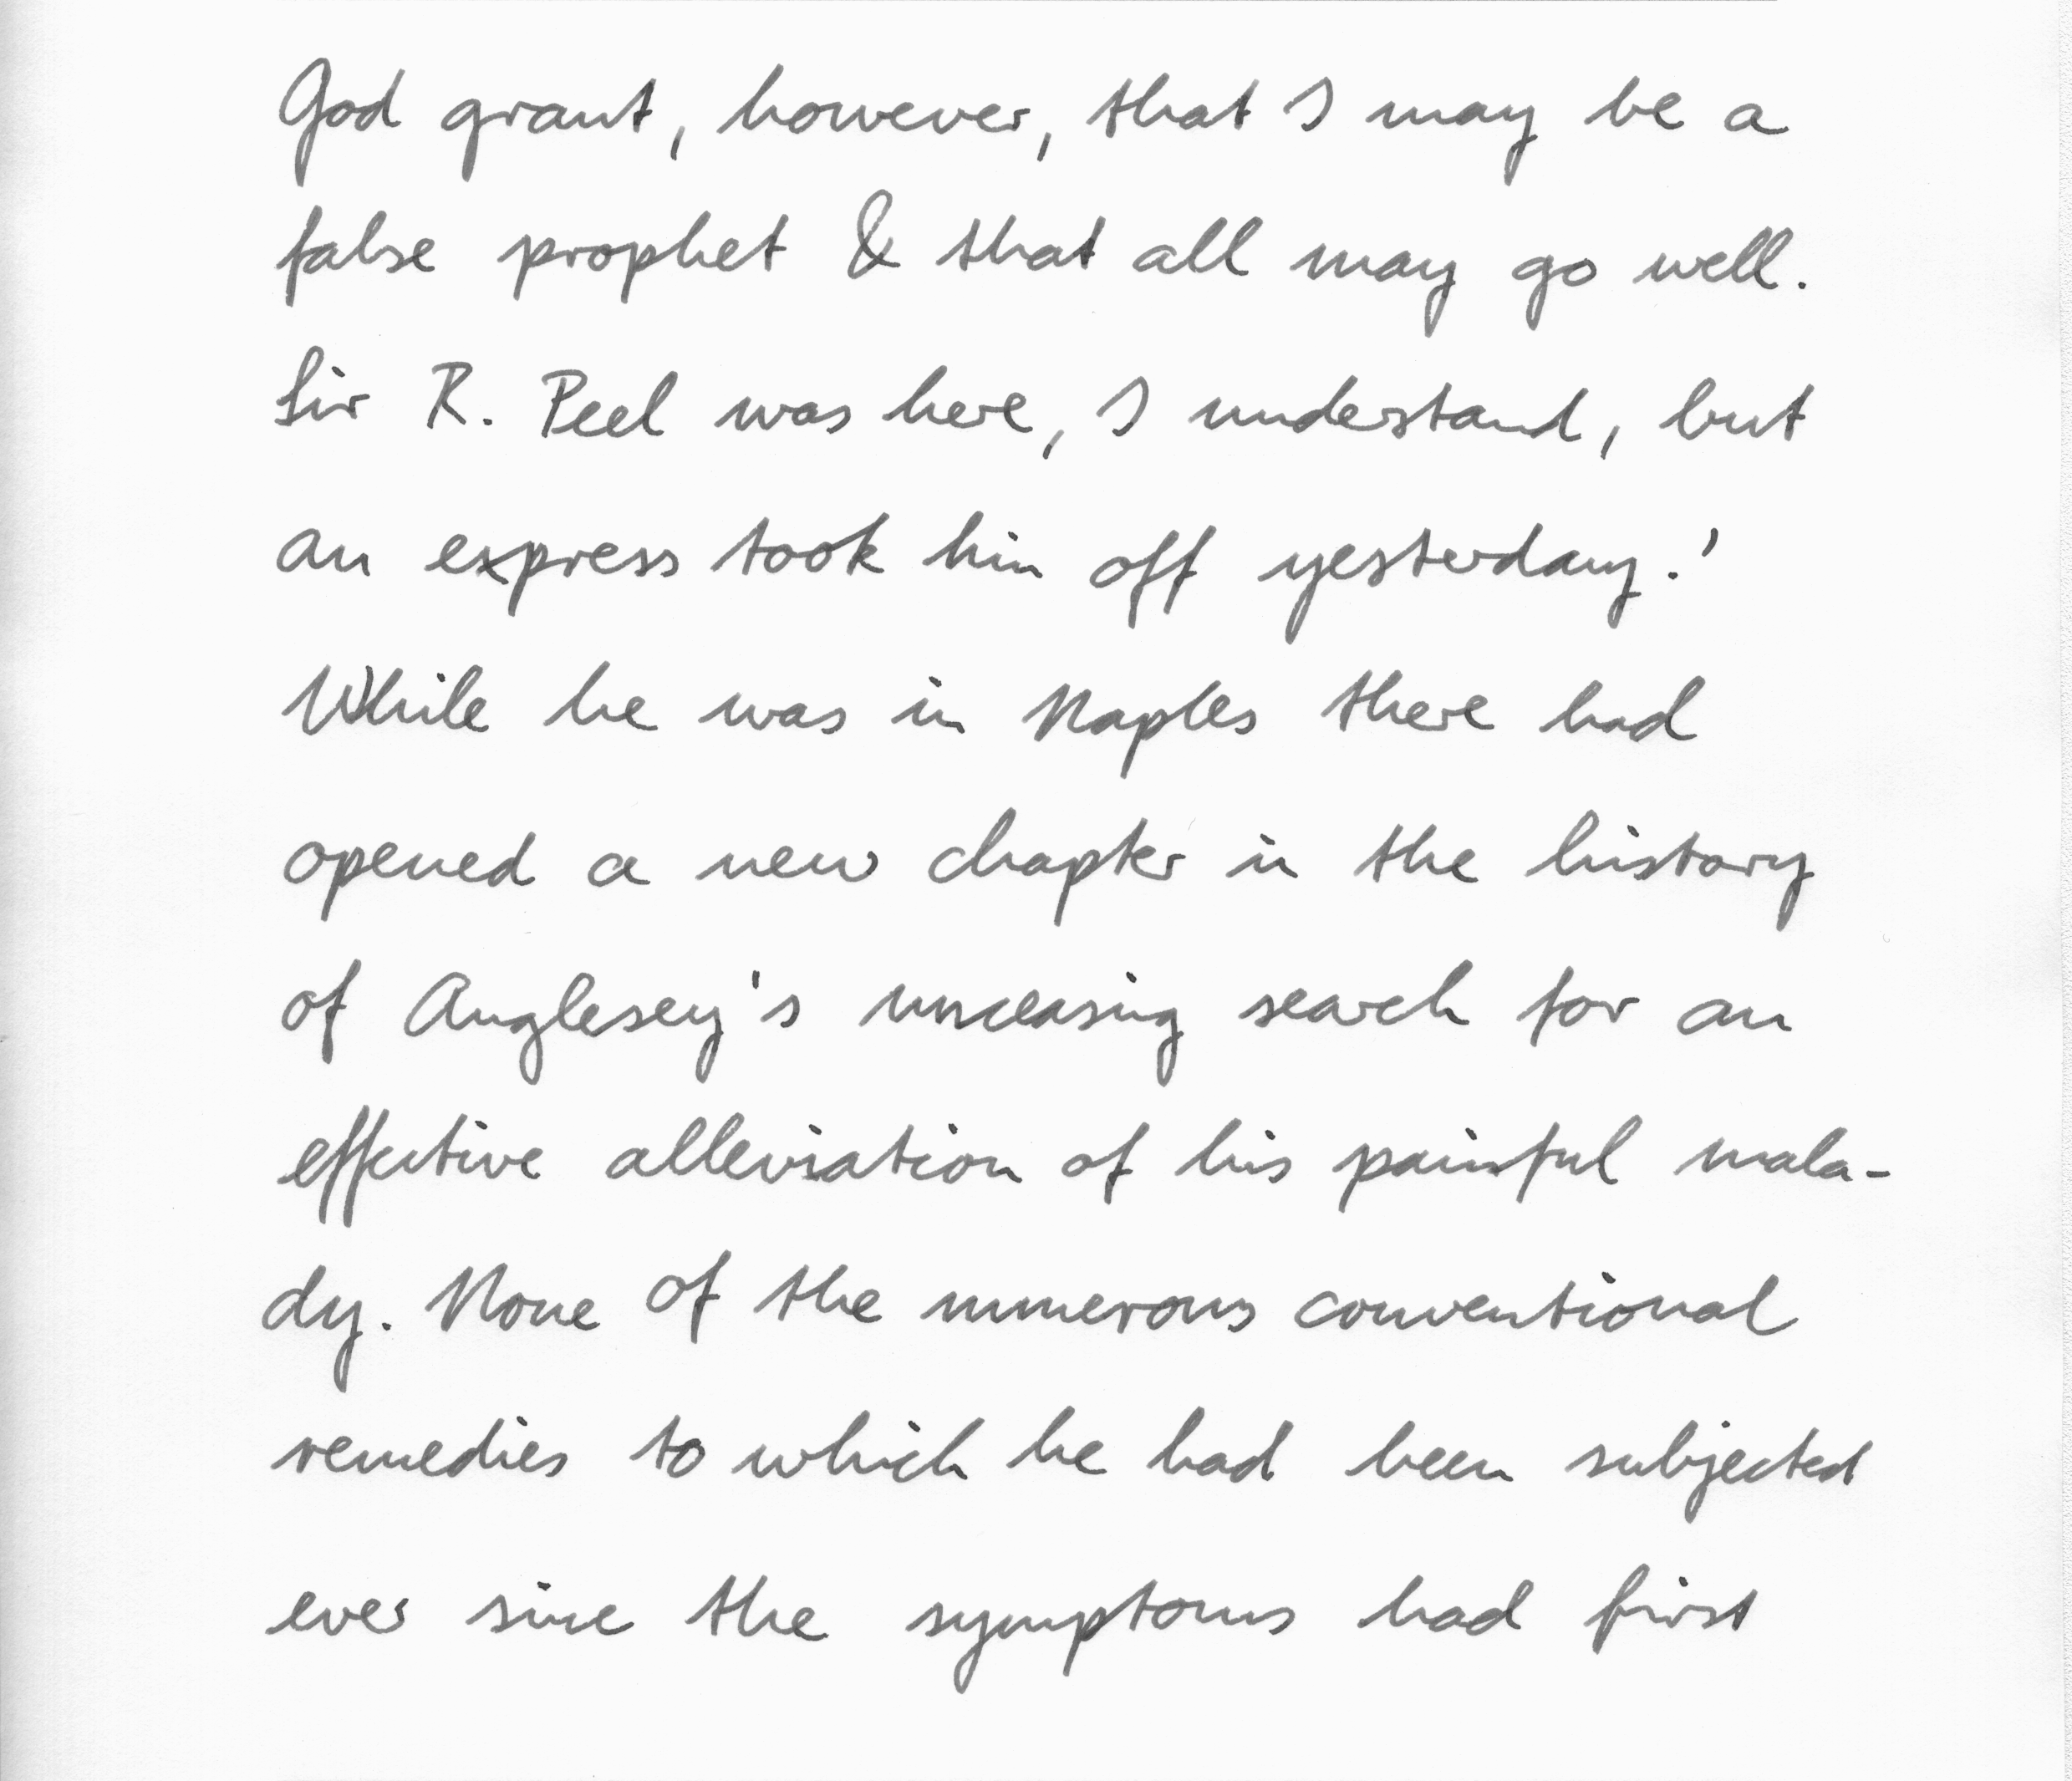 God grant, however, that I may be a
false prophet & that all may go well.
Sir R. Peel was here, I understand, but
an express took him off yesterday.'
While he was in Naples there had
opened a new chapter in the history
of Anglesey's unceasing search for an
effective alleviation of his painful mala-
dy. None of the numerous conventional
remedies to which he had been subjected
ever since the symptoms had first